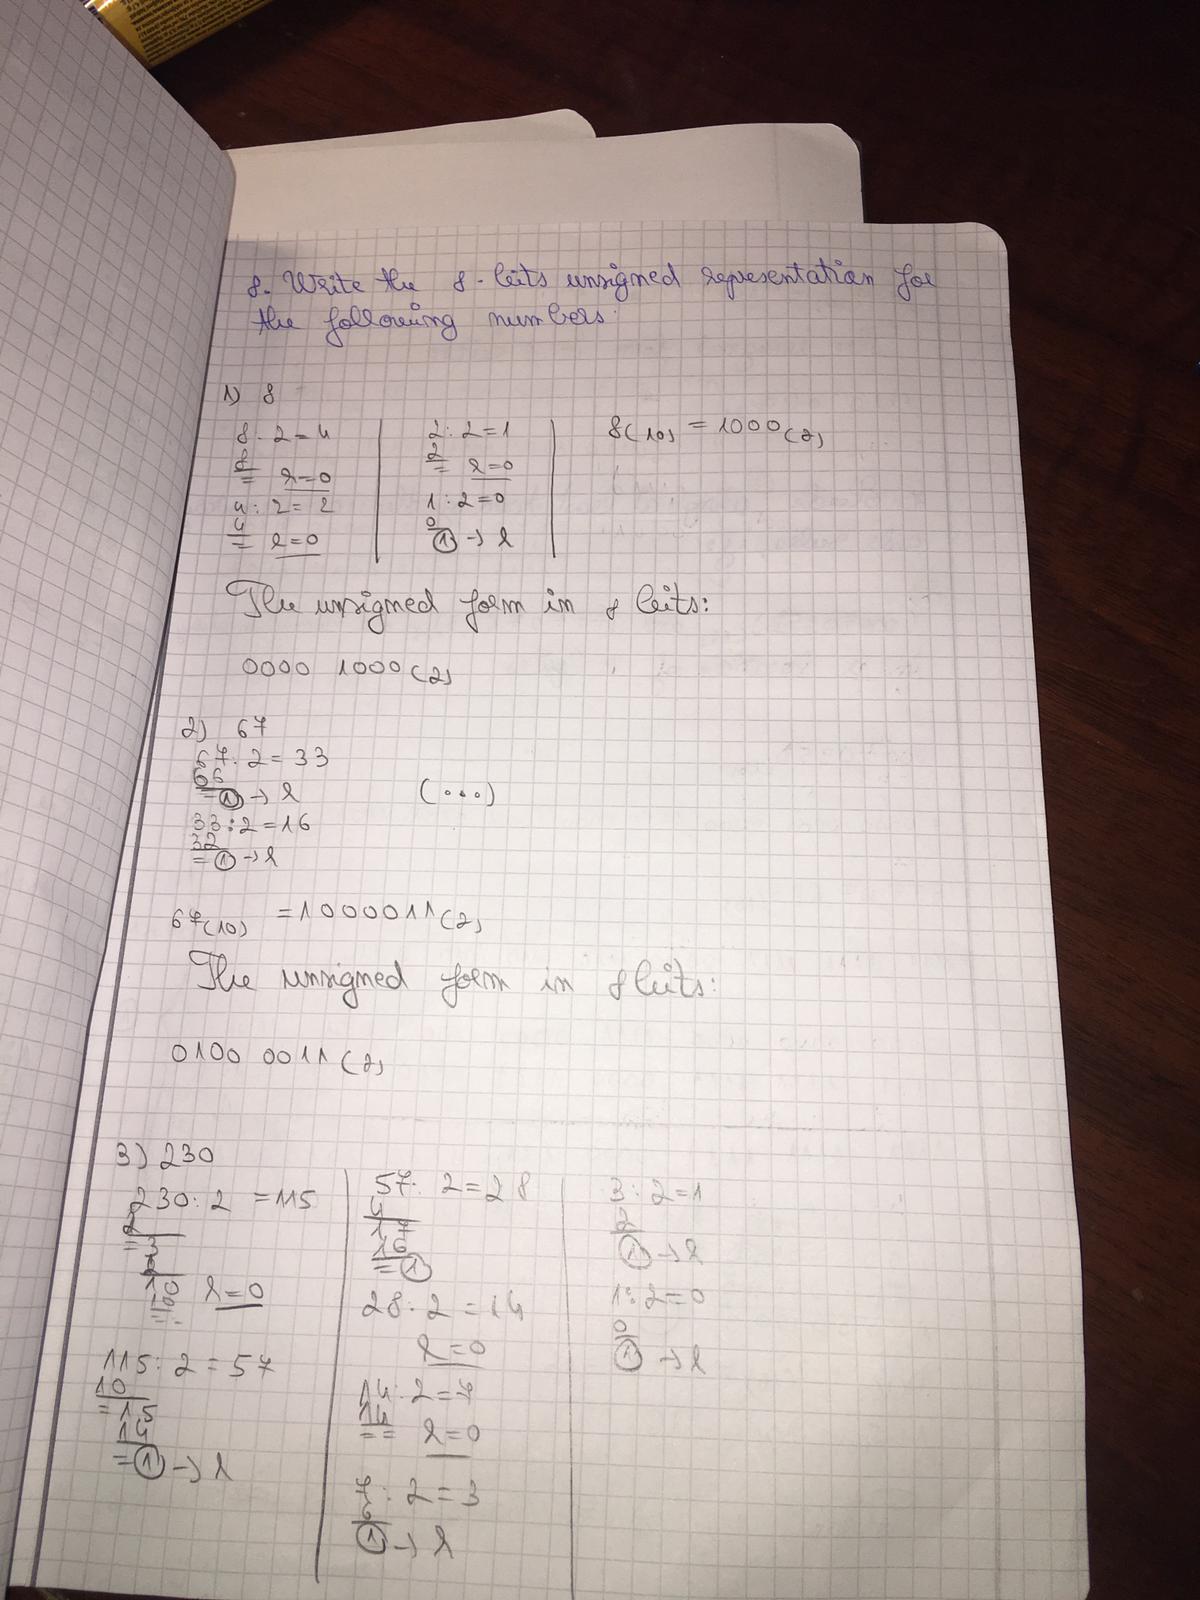 8. Write the 8-bits unsigned representation for
the following numbers:
1) 8
8 : 2 = 4
8
= r=0
4 : 2 = 2
4
= r=0
2 : 2 = 1
2
= r=0
1 : 2 = 0
0
1 → r
8(10) = 1000(2)
The unsigned form in 8 bits:
0000 1000(2)
2) 67
67 : 2 = 33
66
= 1 → r
33 : 2 = 16
32
= 1 → r
(...)
67(10) = 1000011(2)
The unsigned form in 8 bits:
0100 0011(2)
3) 230
230 : 2 = 115
2
=
10 r=0
115 : 2 = 57
10
= 15
14
= 1 → r
57 : 2 = 28
4
17
16
= 1
28 : 2 = 14
r=0
14 : 2 = 7
14
= = r=0
7 : 2 = 3
6
1 → r
3 : 2 = 1
2
1 → r
1 : 2 = 0
0
1 → r